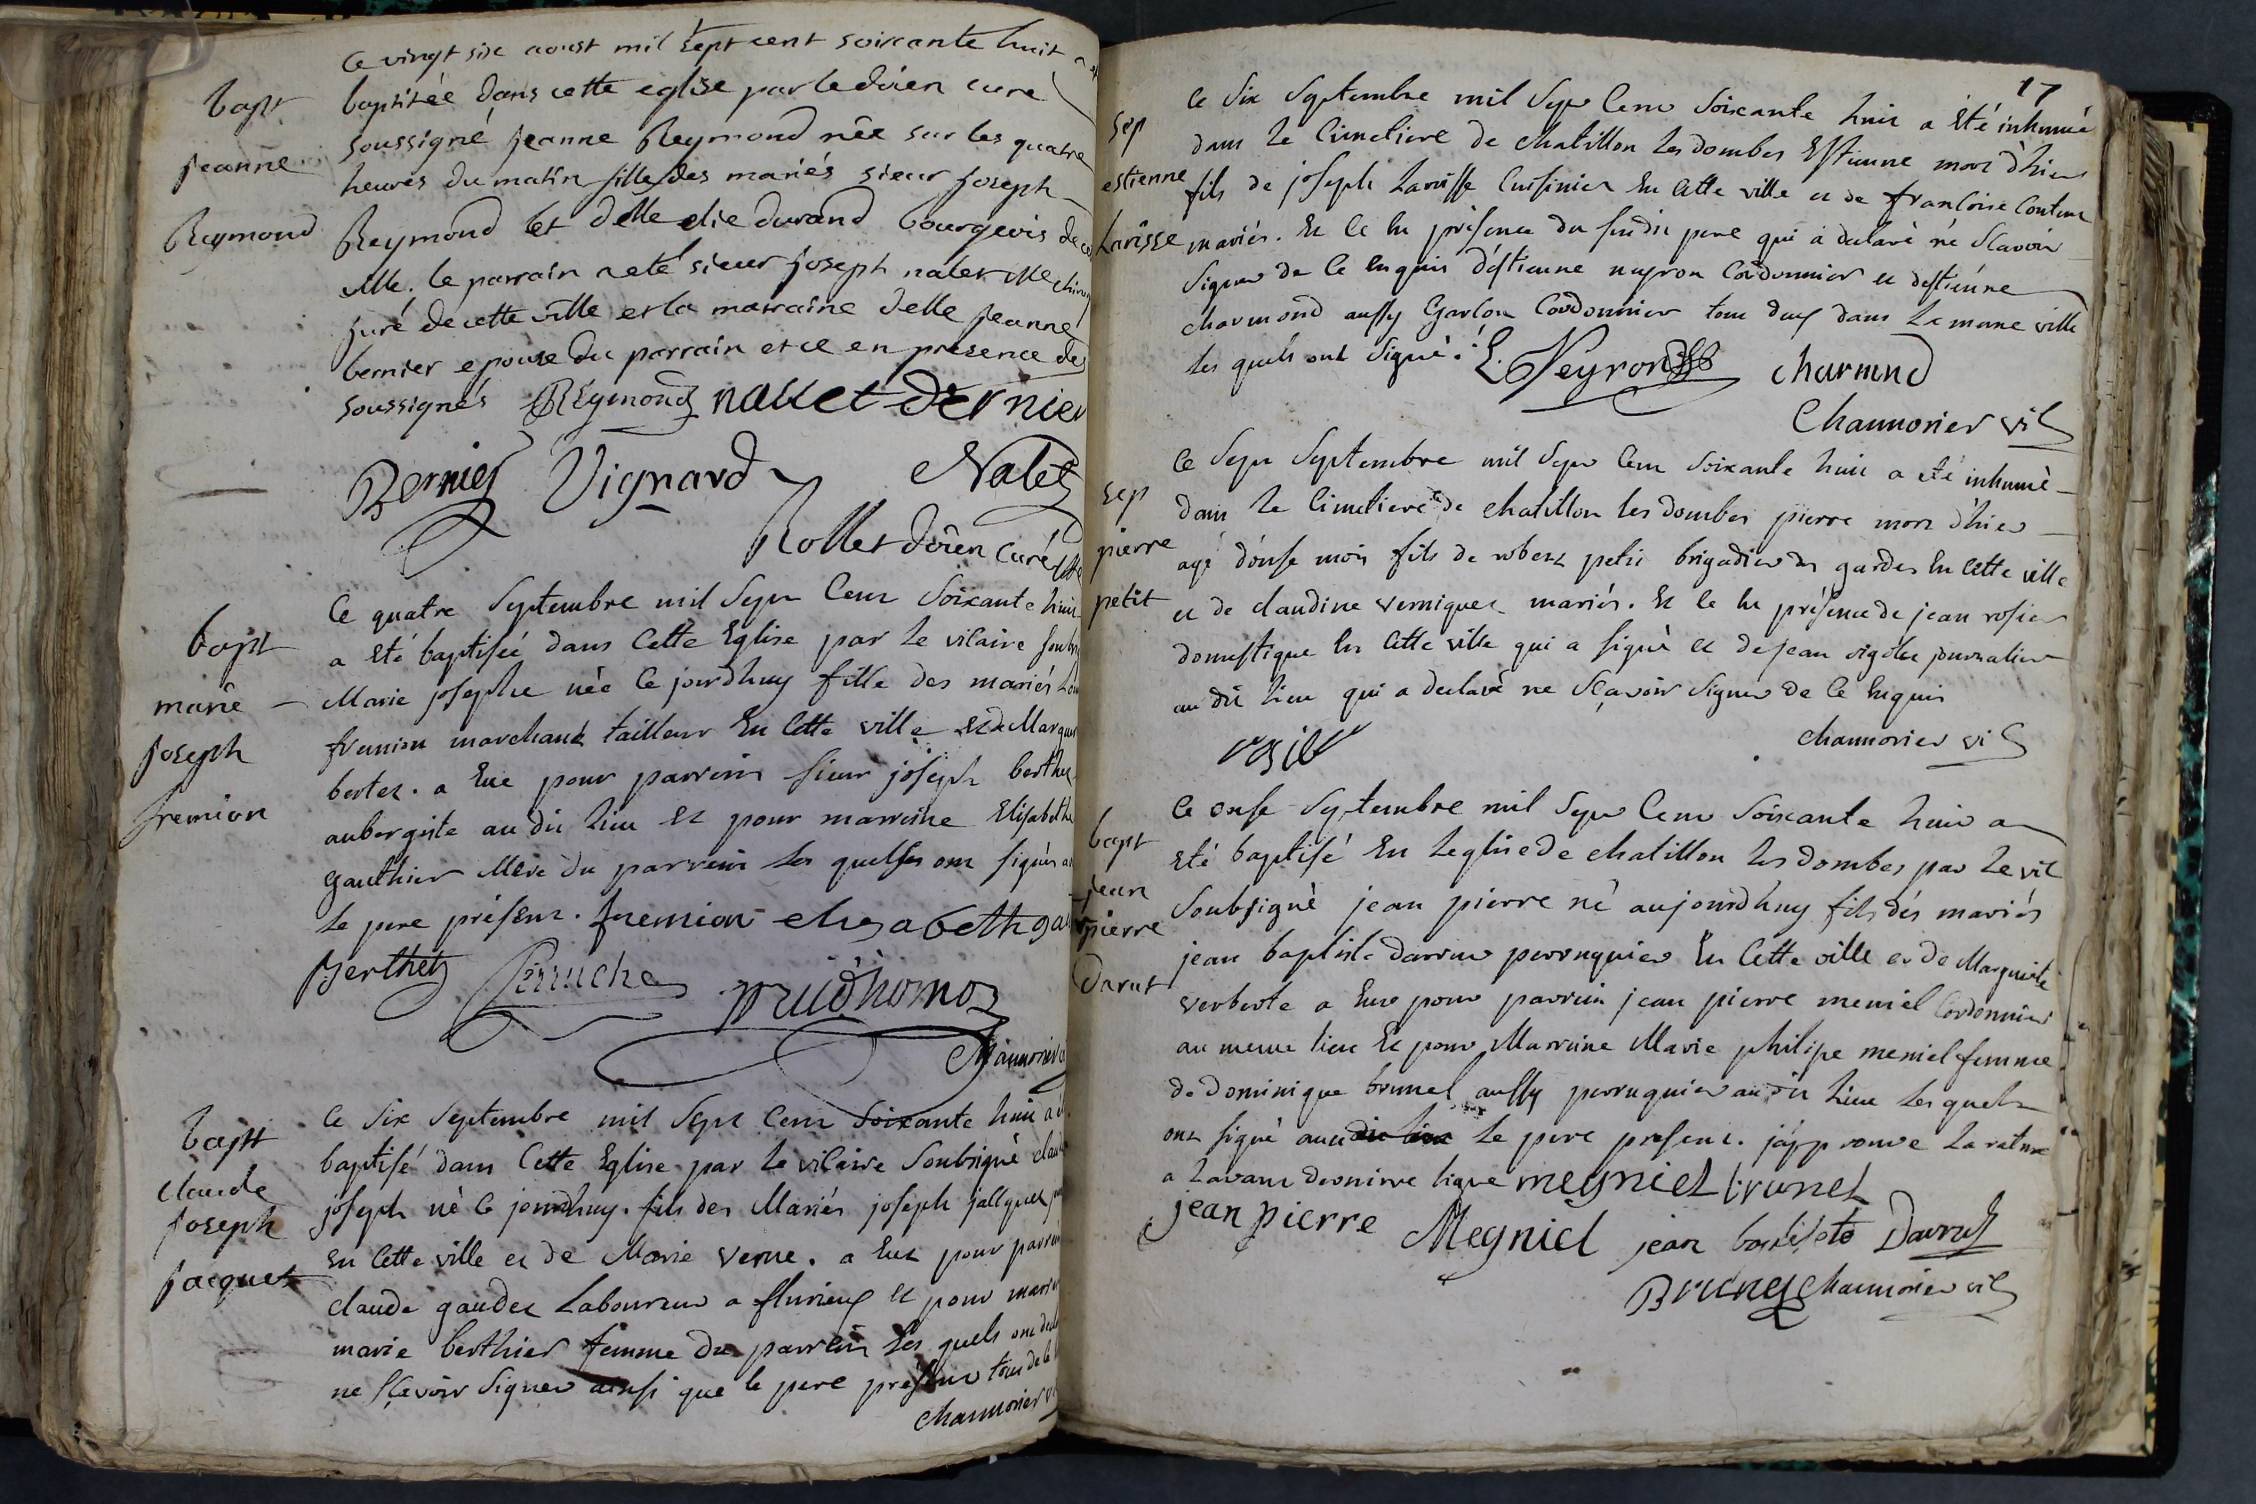 bapt
jeanne
Reymond
Ce vingt six aoust mil sept cent soixante huit a
baptisée dans cette eglise par le doien curé
soussigné jeanne Reymond née sur les quatre
heures du matin fille des mariés sieur joseph
Reymond et delle elie durand bourgeois de
ville. le parrain a eté sieur joseph nalet
juré de cette ville et la marraine delle jeanne
bernier epouse du parrain et ce en presence des
soussignés Reymond nallet dernier
Bernier Vignard Nalet
Rollet doïen curé
bapt
marie
joseph
fremion
Ce quatre Septembre mil Sept Cent Soixante huit
a Eté baptisée dans Cette Eglise par le vicaire
Marie josephe née Ce jourdhuy fille des mariés
fremion marchand tailleur En Cette ville et de
bertet. a Eue pour parrein sieur joseph berthet
aubergiste au dit lieu Et pour marreine Elisabeth
gauthier Mere du parrein les quels ont signés
le pere présent. fremion elisabeth
Berthet Perruche prudhomos
Chaumorier
bapt
claude
joseph
jacquet
Ce Six Septembre mil Sept Cent Soixante huit a
baptisé dans Cette Eglise par le vicaire Soubsigné
joseph né Ce jourdhuy. fils des Mariés joseph jacquet
En Cette ville et de Marie verne. a Eut pour parrein
claude gaudet Laboureur a flurieux et pour
marie berthier femme du parrein les quels ont
ne sçavoir Signer ainsi que le pere présent tous de
chaumorier
17
sep
estienne
Larisse
Ce Six Septembre mil Sept Cent Soixante huit a Eté inhumé
dans Le Cimetiere de chatillon les dombes Estienne mort d'hier
fils de joseph Larisse Cuisinier En Cette ville et de françoise
mariés. Et Ce En présence du susdit pere qui a declaré né Scavoir
Signer de Ce Enquis d'estienne neyron Cordonnier et d'estienne
charmond aussy Garçon Cordonnier tous deux dans la meme ville
les quels ont Signé. E. Neyron charmnd
Chaumorier vic
sep
pierre
petit
Ce Sept Septembre mil Sept Cent Soixante huit a eté inhumé
dans Le Cimetiere de chatillon les dombes pierre mort d'hier
agé d'onse mois fils de robert petit brigadier des gardes En Cette ville
et de claudine verniquet mariés. Et Ce En présence de jean rosier
domestique En Cette ville qui a signé et de jean journalier
au dit lieu qui a declaré ne Sçavoir Signer de Ce Enquis
rosier
chaumorier vic
bapt
jean
pierre
Darut
Ce onse Septembre mil Sept Cent Soixante huit a
Eté baptisé En L'eglise de chatillon les dombes par Le vic
Soubsigné jean pierre né aujourdhuy fils dés mariés
jean baptiste darrut perruquier En Cette ville et de Marguerite
a Eut pour parrein jean pierre meniel Cordonnier
au meme lieu Et pour Marreine Marie philipe meniel femme
de dominique brunel aussy perruquier au dit lieu Les quels
ont signé avec dit lieu Le pere présent. j'approuve la rature
a Lavant derniere ligne megniel brunel
jean pierre Megniel jean batiste Darrut
Brunel chaumorier vic